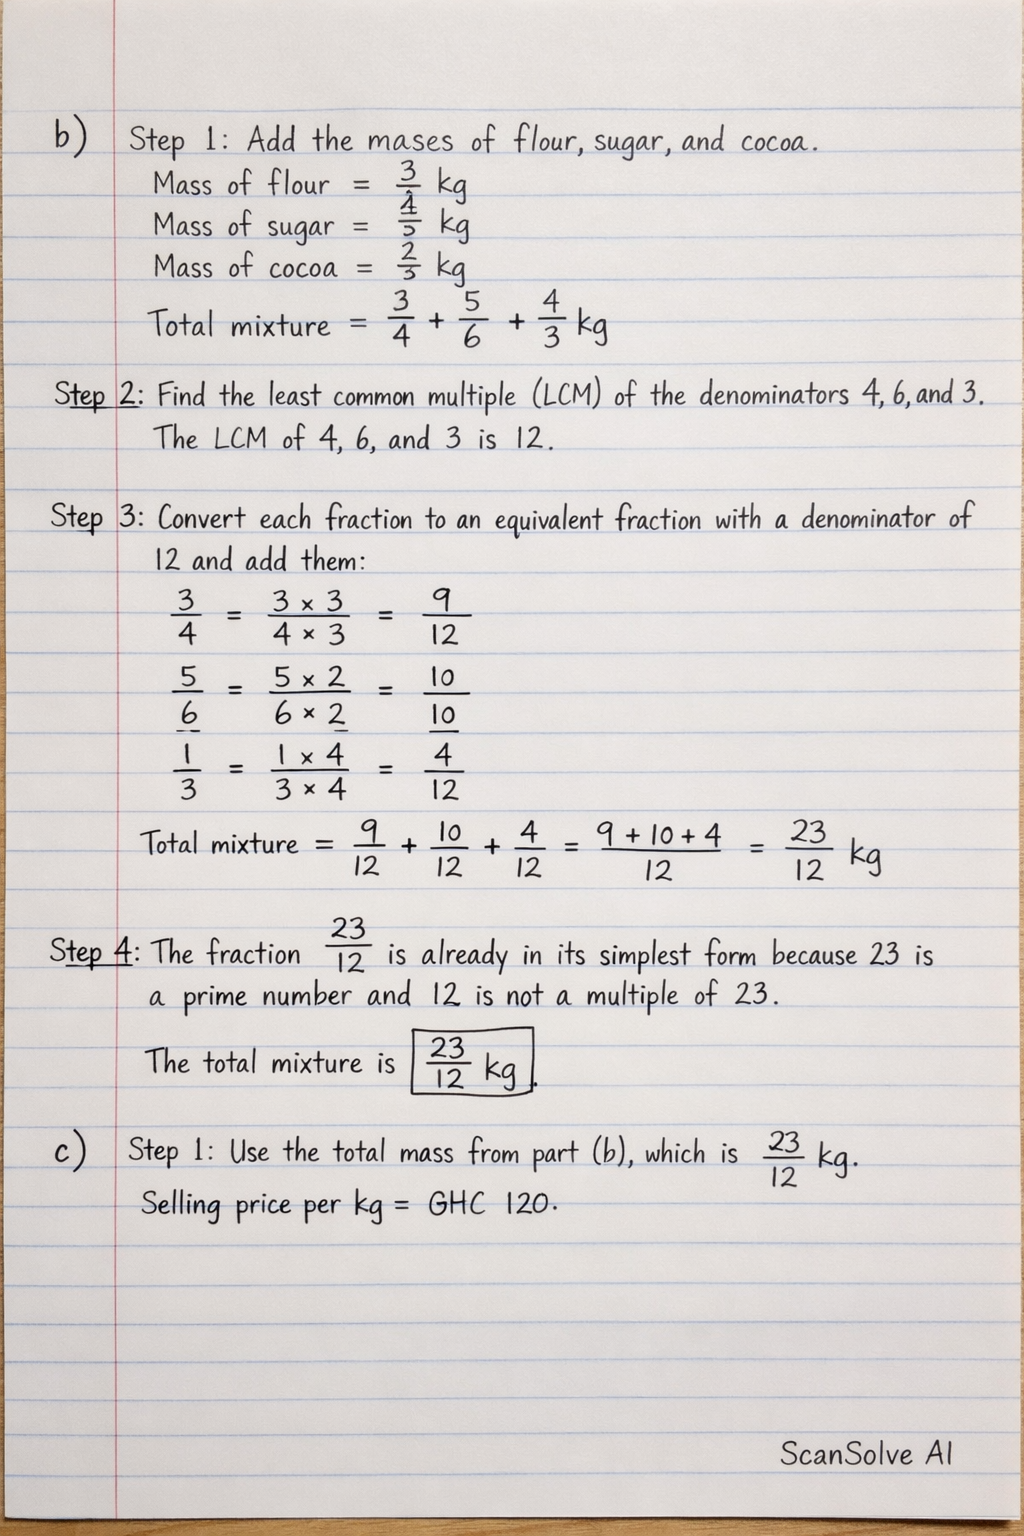 b) Step 1: Add the mases of flour, sugar, and cocoa.
Mass of flour = 3/4 kg
Mass of sugar = 4/5 kg
Mass of cocoa = 2/3 kg
Total mixture = 3/4 + 5/6 + 4/3 kg
Step 2: Find the least common multiple (LCM) of the denominators 4, 6, and 3.
The LCM of 4, 6, and 3 is 12.
Step 3: Convert each fraction to an equivalent fraction with a denominator of
12 and add them:
3/4 = 3 × 3/4 × 3 = 9/12
5/6 = 5 × 2/6 × 2 = 10/10
1/3 = 1 × 4/3 × 4 = 4/12
Total mixture = 9/12 + 10/12 + 4/12 = 9 + 10 + 4/12 = 23/12 kg
Step 4: The fraction 23/12 is already in its simplest form because 23 is
a prime number and 12 is not a multiple of 23.
The total mixture is 23/12 kg.
c) Step 1: Use the total mass from part (b), which is 23/12 kg.
Selling price per kg = GHC 120.
ScanSolve AI